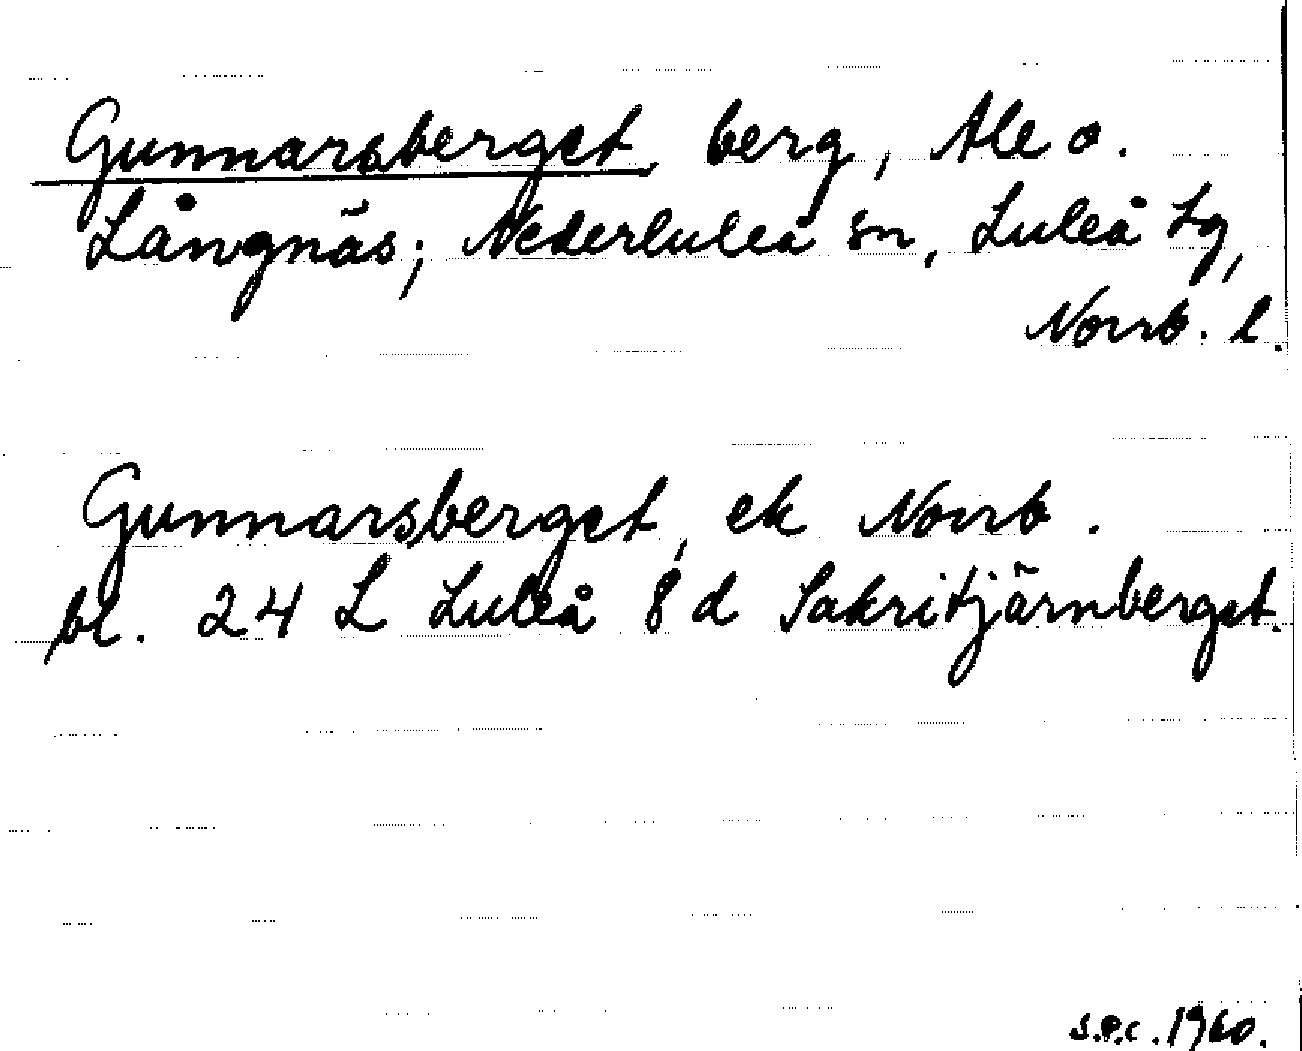 Gunnarsberget, berg, Ale o.
Långnäs; Nederluleå sn, Luleå tg,
Norrb. l.
Gunnarsberget, ek Norrb.
bl. 24 L Luleå 8 d Sakritjärnberget.
S.P.C. 1960.